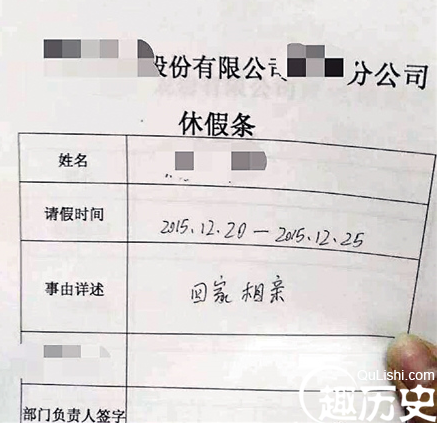 股份有限公司 分公司
休假条
姓名
请假时间 2015.12.20 — 2015.12.25
事由详述 回家相亲
部门负责人签字
QuLishi.com
趣历史